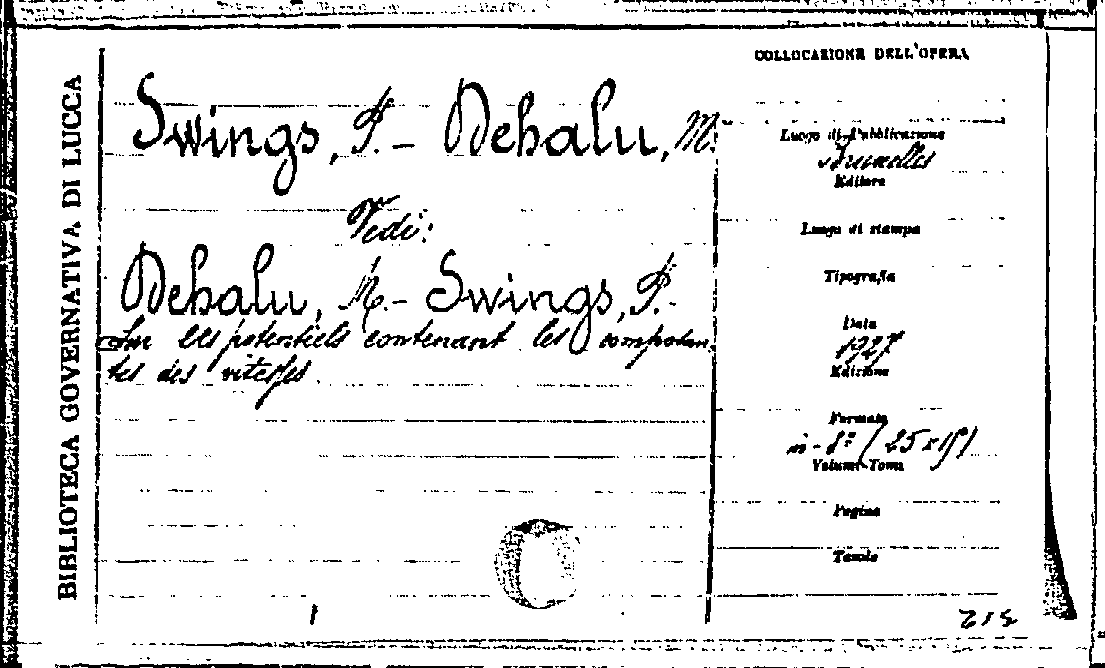 BIBLIOTECA GOVERNATIVA DI LUCCA
Swings, P. - Dehalu, M.
Vedi:
Dehalu, M. - Swings, P.
Sur les potentiels contenant les composan-
tes des vitesses
COLLOCAZIONE DELL'OPERA
Luogo di Pubblicazione
Bruxelles
Editore
Luogo di stampa
Tipografia
Data
1927
Edizione
Formato
in-8° (25x19)
Volumi-Tomi
Pagine
Tavole